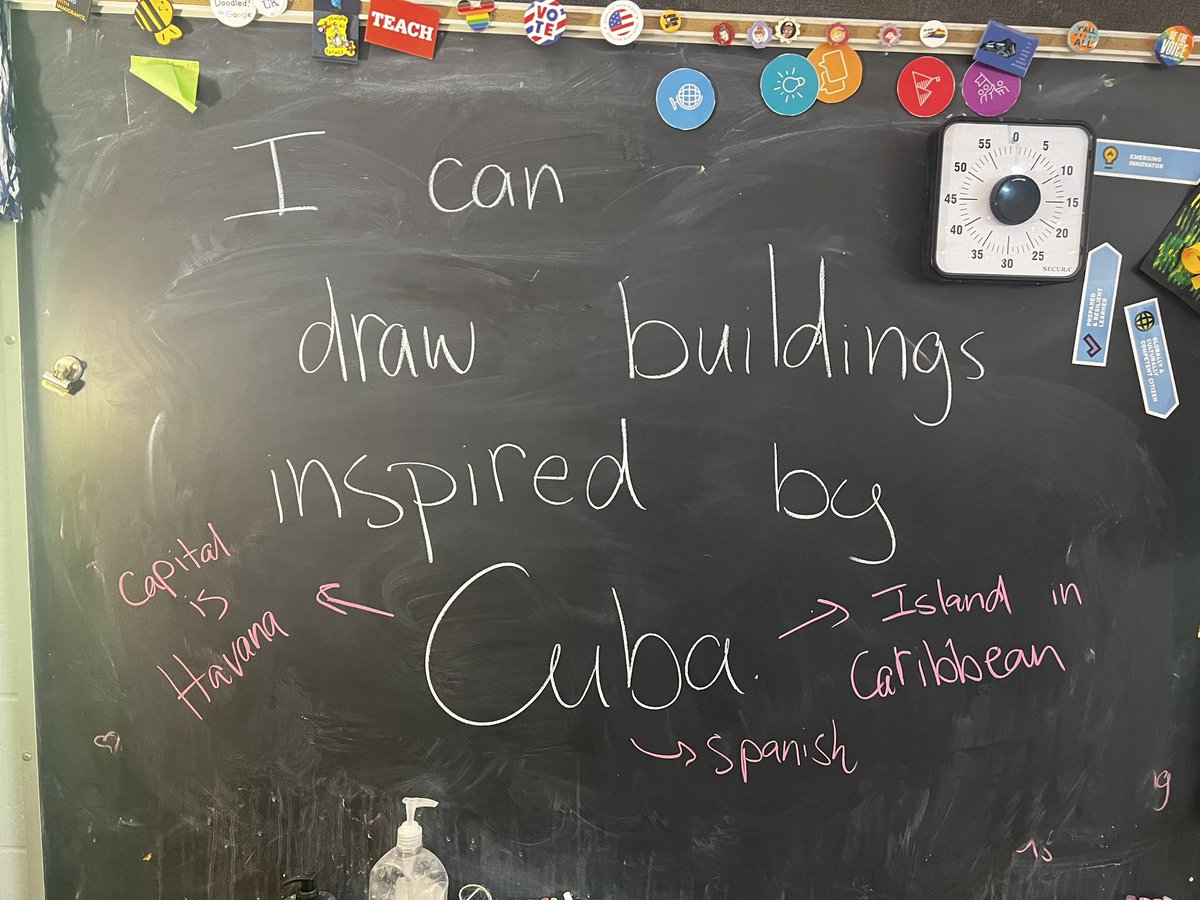 Doodled!
for Google
UK
TEACH
VOTE
Y'ALL
ALL
BE THE
VOICE
I can
draw buildings
inspired by
Cuba.
Capital
is
Havana
Island in
Caribbean
Spanish
0
5
10
15
20
25
30
35
40
45
50
55
SECURA
EMERGING
INNOVATOR
PREPARED
& RESILIENT
LEARNER
GLOBALLY &
CULTURALLY
COMPETENT CITIZEN